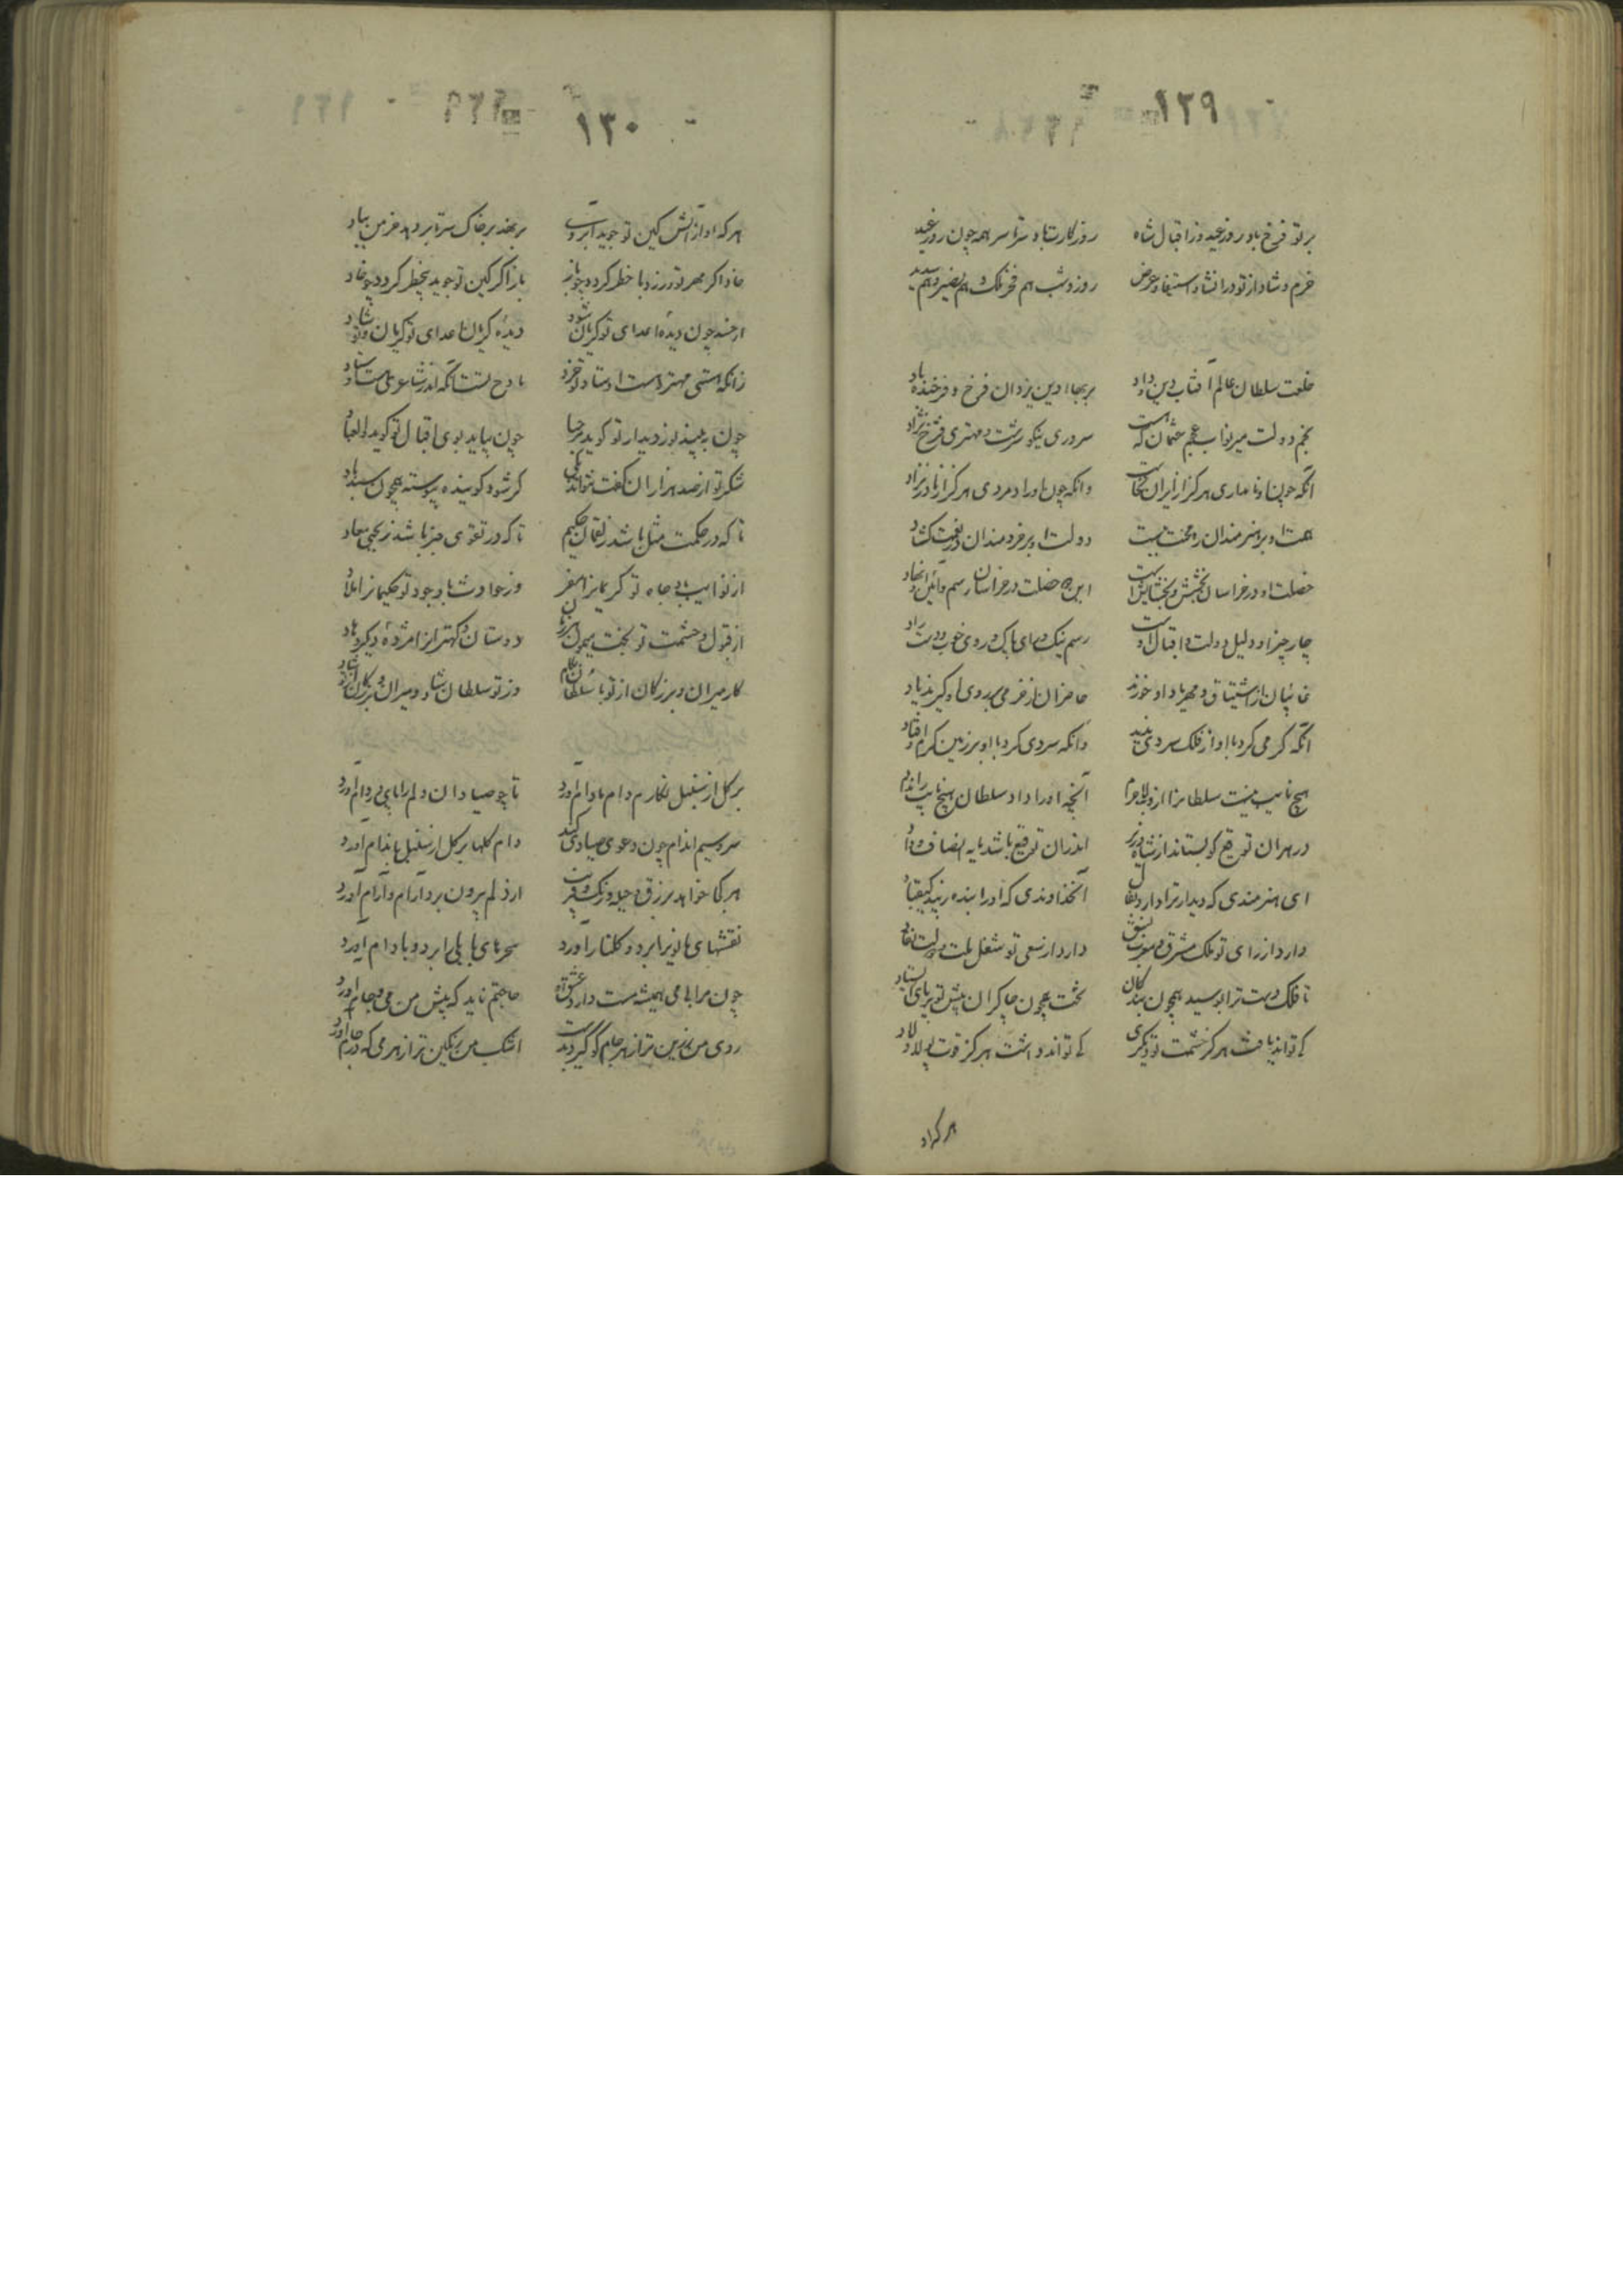 ۱۲۹
بر تو فرخ باد روز عید وز اقبال شاه روزکارت باد سرتاسر همه چون روز عید
خرم و شاد از تو در انشاد استیفا و عرض روز و شب هم فخر ملک و هم نصیر و هم سدید
خلعت سلطان عالم آفتاب دین و داد بر بهاء دین یزدان فرخ و فرخنده باد
نجم دولت میر نواب عجم عثمان که هست سروری نیکو سرشت و مهتری فرخ نژاد
آنکه چون او نامداری هرکز از ایران نخاست وانکه چون او رادمردی هرکز از مادر نزاد
همت او بر هنرمندان در محنت ببست دولت او بر خردمندان در نعمت کشاد
خصلت او در خراسان بخشش و بخشایش است این دو خصلت در خراسان رسم و آئین او نهاد
چار چیز او دلیل دولت و اقبال اوست رسم نیک و رای پاک و روی خوب و دست راد
غائبان از اشتیاق و مهر یاد او خورند حاضران از خرمی بر روی او کیرند یاد
آنکه کرمی کرد با او از فلک سردی بدید وانکه سردی کرد با او بر زمین کرم اوفتاد
هیچ نایب نیست سلطانرا ازو به لاجرم آنچه او را داد سلطان هیچ نایب را نداد
در هران توقیع کو بستاند از شاه و وزیر اندران توقیع باشد مایه انصاف و داد
ای هنرمندی که دیدار ترا دارد بفال آنخداوندی که او را بنده زیبد کیقباد
دارد از رای تو ملک مشرق و مغرب نسق دارد از سعی تو شغل ملت و دولت نفاد
تا فلک دست ترا بوسید همچون بندکان بخت همچون چاکران پیش تو بر پای ایستاد
کی تواند یافت هرکز حشمت تو دیکری کی تواند داشت هرکز قوت پولاد لاد
هر که او
۱۳۰
هر که او از آتش کین تو جوید آبروی بر نهد بر خاک سر تا بر دهد خرمن بباد
خاد اکر مهر تو ورزد با خطر کردد چو باز باز اکر کین تو جوید بیخطر کردد چو خاد
ارجمند چون دیده اعدای تو کریان شود دیده کریان اعدای تو کریان و تو شاد
زانکه هستی مهتر و هست اوستاد تو خرد مادح تست آنکه اندر شاعری هست اوستاد
چون ببیند نور دیدار تو کوید مرحبا چون بیاید بوی اقبال تو کوید والعباد
شکر تو از صد هزاران کفت نتواند یکی کر شود کوینده پیوسته همچون سندباد
تا که در حکمت مثل باشد ز لقمان حکیم تا که در تقوی خبر باشد ز یحیی معاد
از نوایب باد جاه تو کریمانرا مفر وز حوادث باد وجود تو حکیمانرا ملاذ
از قبول و حشمت تو بخت میمون هر زمان دوستان و کهترانرا مژده دیکر دهاد
کار میران و بزرکان از تو با سلطان بکام وز تو سلطان شاد و میران و بزرکان از تو شاد
بر کل از سنبل نکارم دام مادام آورد تا چو صیادان دلم را پای در دام آورد
سرو سیم اندام چون دعوی صیادی کند دام کلها بر کل از سنبل باندام آورد
هر کجا خواهد بزرق و حیله و نیرنک و فن از دلم بیرون برد آرام و آرام آورد
نقشهای مانویرا برد و کلنار آورد سحرهای بابلی را بر دو بادام آورد
چون مرا بی می همیشه مست دارد عشق او حاجتم ناید که پیش من می و جام آورد
روی من زرین تر از هر جام کو کیرد بدست اشک من رنکین تر از هر می که در جام آورد